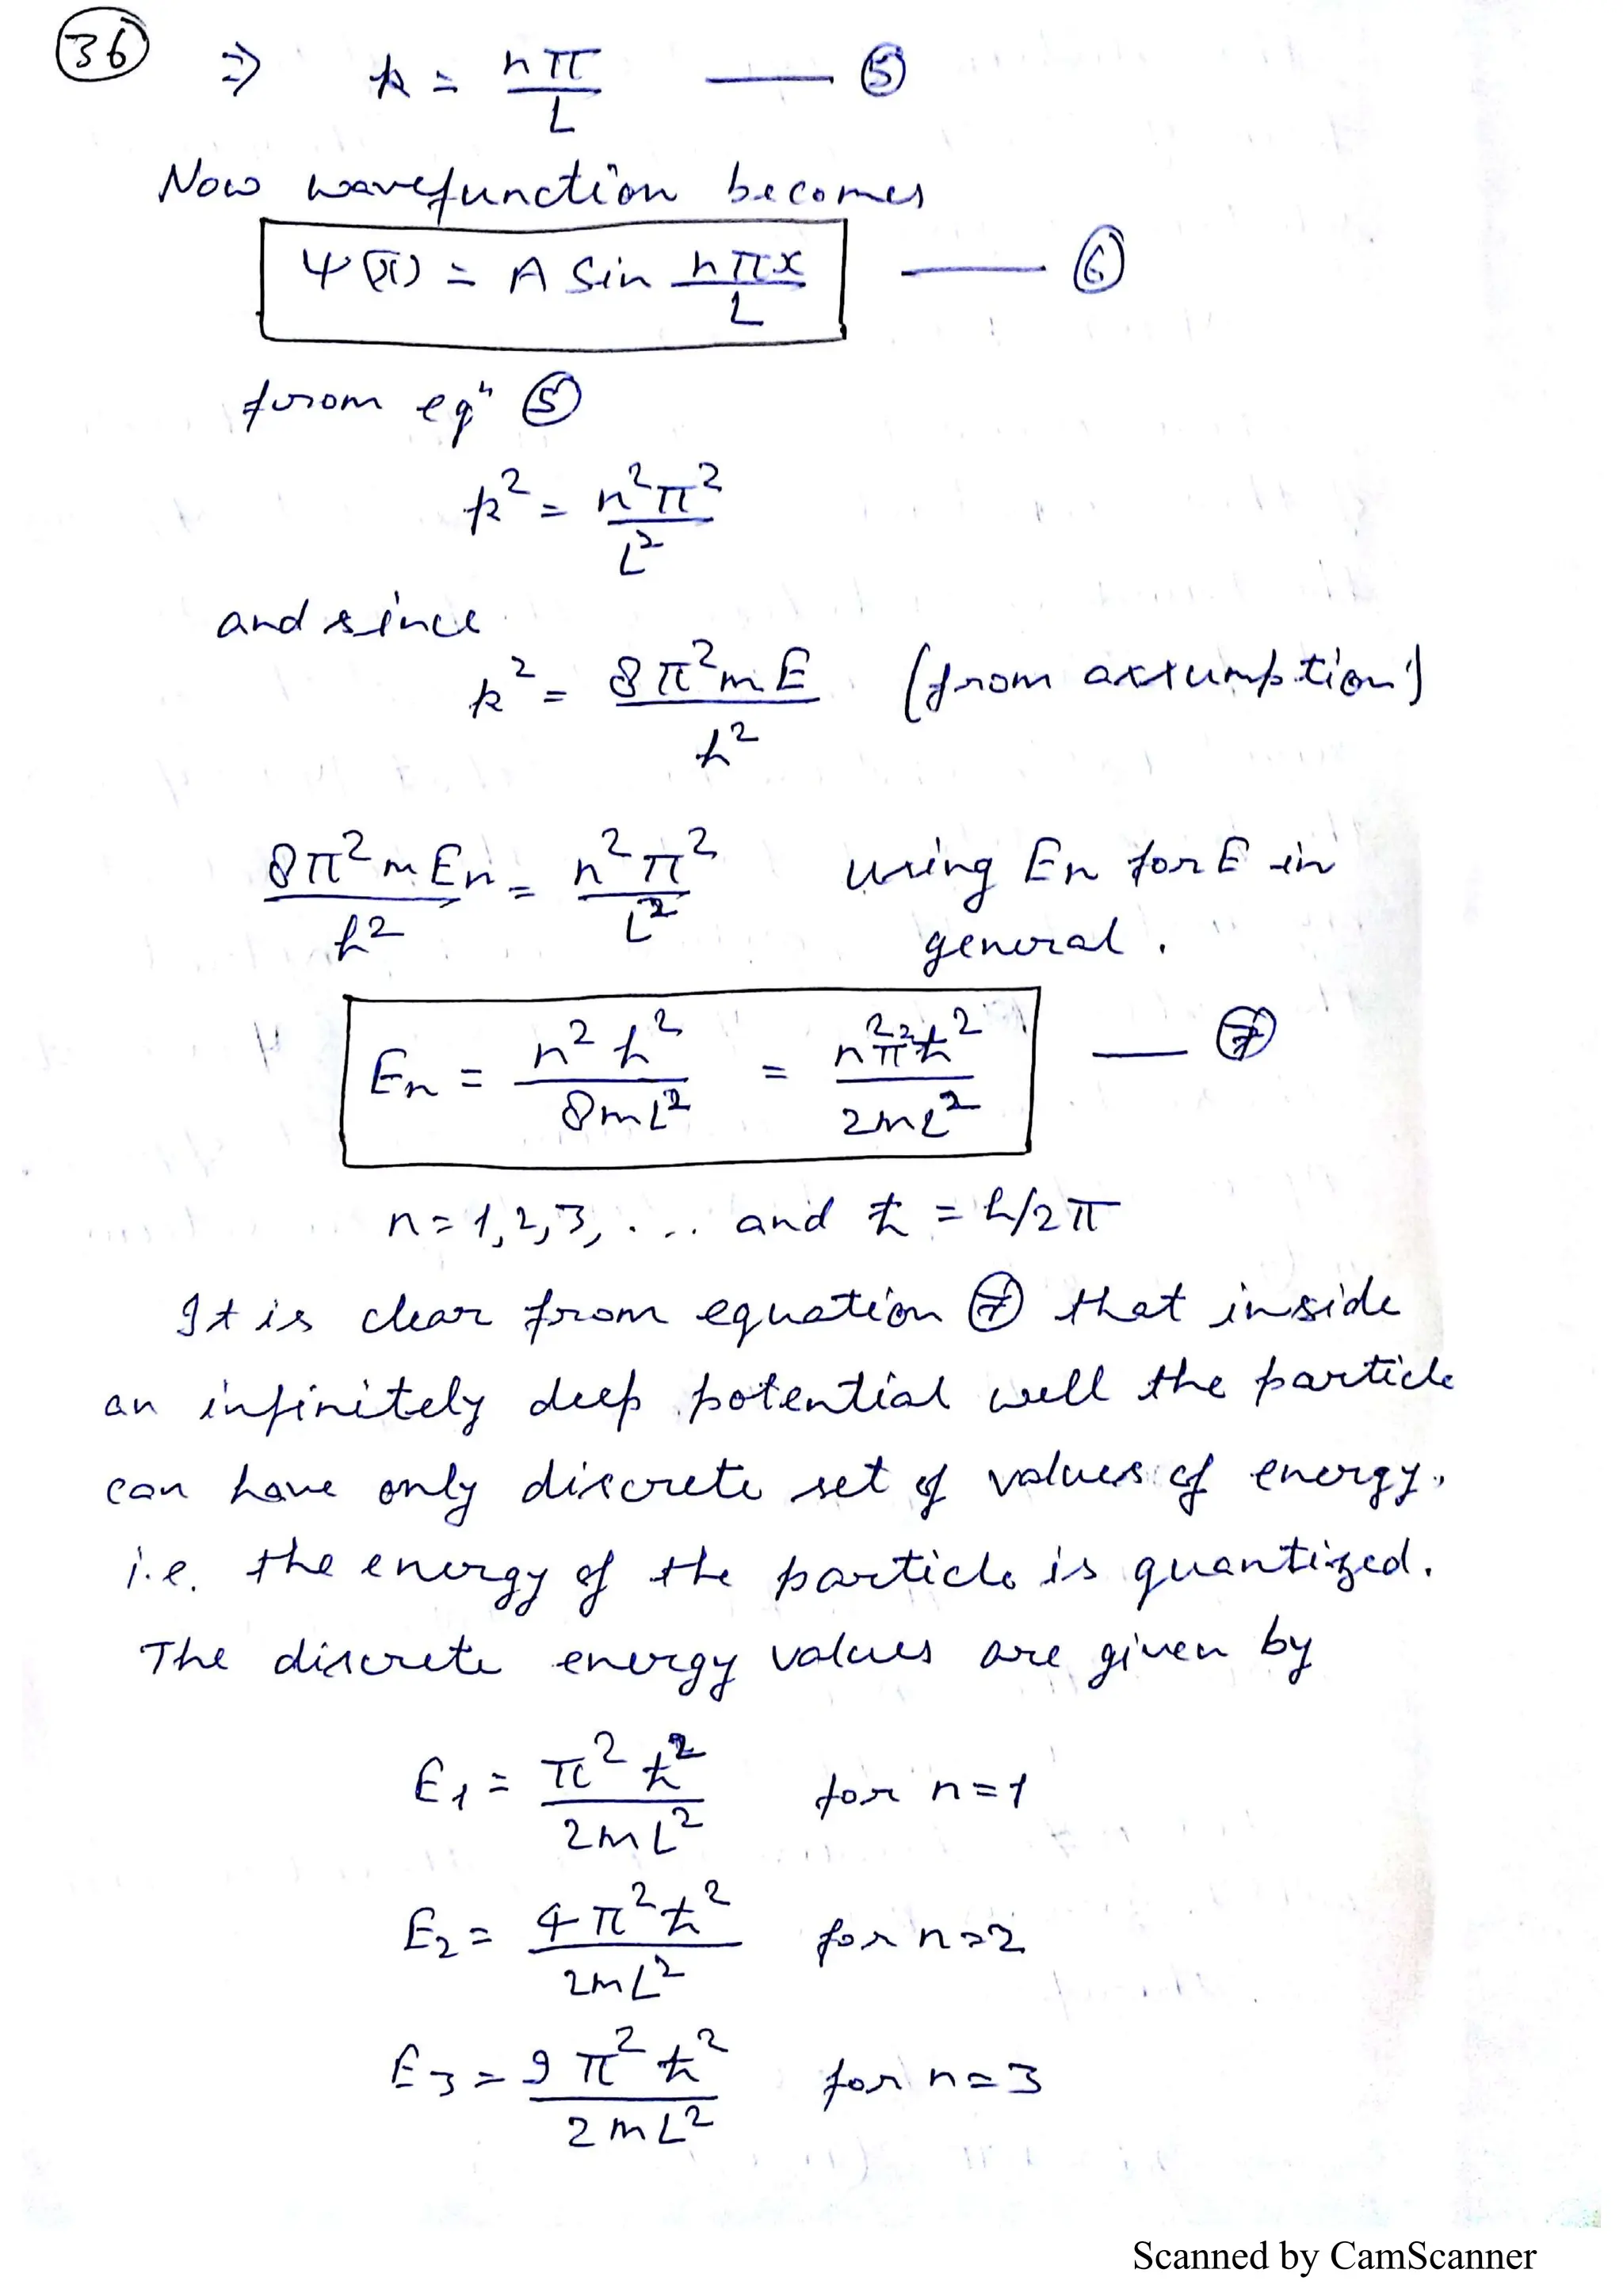 36 ⇒ k = nπ/L —— ⑤
Now wavefunction becomes
Ψ(x) = A Sin nπx/L —— ⑥
from eqⁿ ⑤
k² = n²π²/L²
and since
k² = 8π²mE/h² (from assumption)
8π²mEn/h² = n²π²/L² using En for E in
general.
En = n²h²/8mL² = n²π²ħ²/2mL² —— ⑦
n = 1, 2, 3, .... and ħ = h/2π
It is clear from equation ⑦ that inside
an infinitely deep potential well the particle
can have only discrete set of values of energy.
i.e. the energy of the particle is quantized.
The discrete energy values are given by
E1 = π²ħ²/2mL² for n=1
E2 = 4π²ħ²/2mL² for n=2
E3 = 9π²ħ²/2mL² for n=3
Scanned by CamScanner